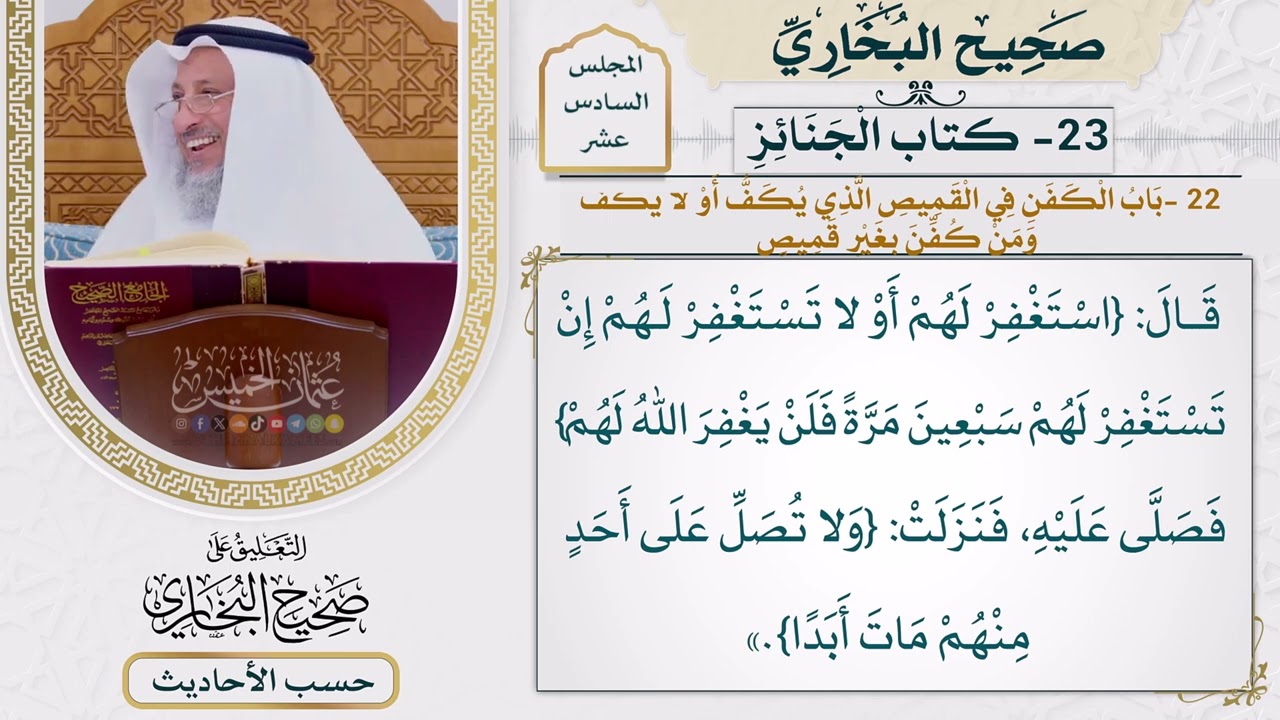 صَحِيح البُخَارِيِّ
المجلس
السادس
عشر
23- كتاب الْجَنَائِزِ
22 -بَابُ الْكَفَنِ فِي الْقَمِيصِ الَّذِي يُكَفُّ أَوْ لا يكف
وَمَنْ كُفِّنَ بِغَيْرِ قَمِيصٍ
قَالَ: {اسْتَغْفِرْ لَهُمْ أَوْ لا تَسْتَغْفِرْ لَهُمْ إِنْ
تَسْتَغْفِرْ لَهُمْ سَبْعِينَ مَرَّةً فَلَنْ يَغْفِرَ اللهُ لَهُمْ}
فَصَلَّى عَلَيْهِ، فَنَزَلَتْ: {وَلا تُصَلِّ عَلَى أَحَدٍ
مِنْهُمْ مَاتَ أَبَدًا}.»
الجامع الصحيح
عُثمان الخميس
التَّعْلِيقُ عَلَى
صَحِيح البُخَارِي
حسب الأحاديث